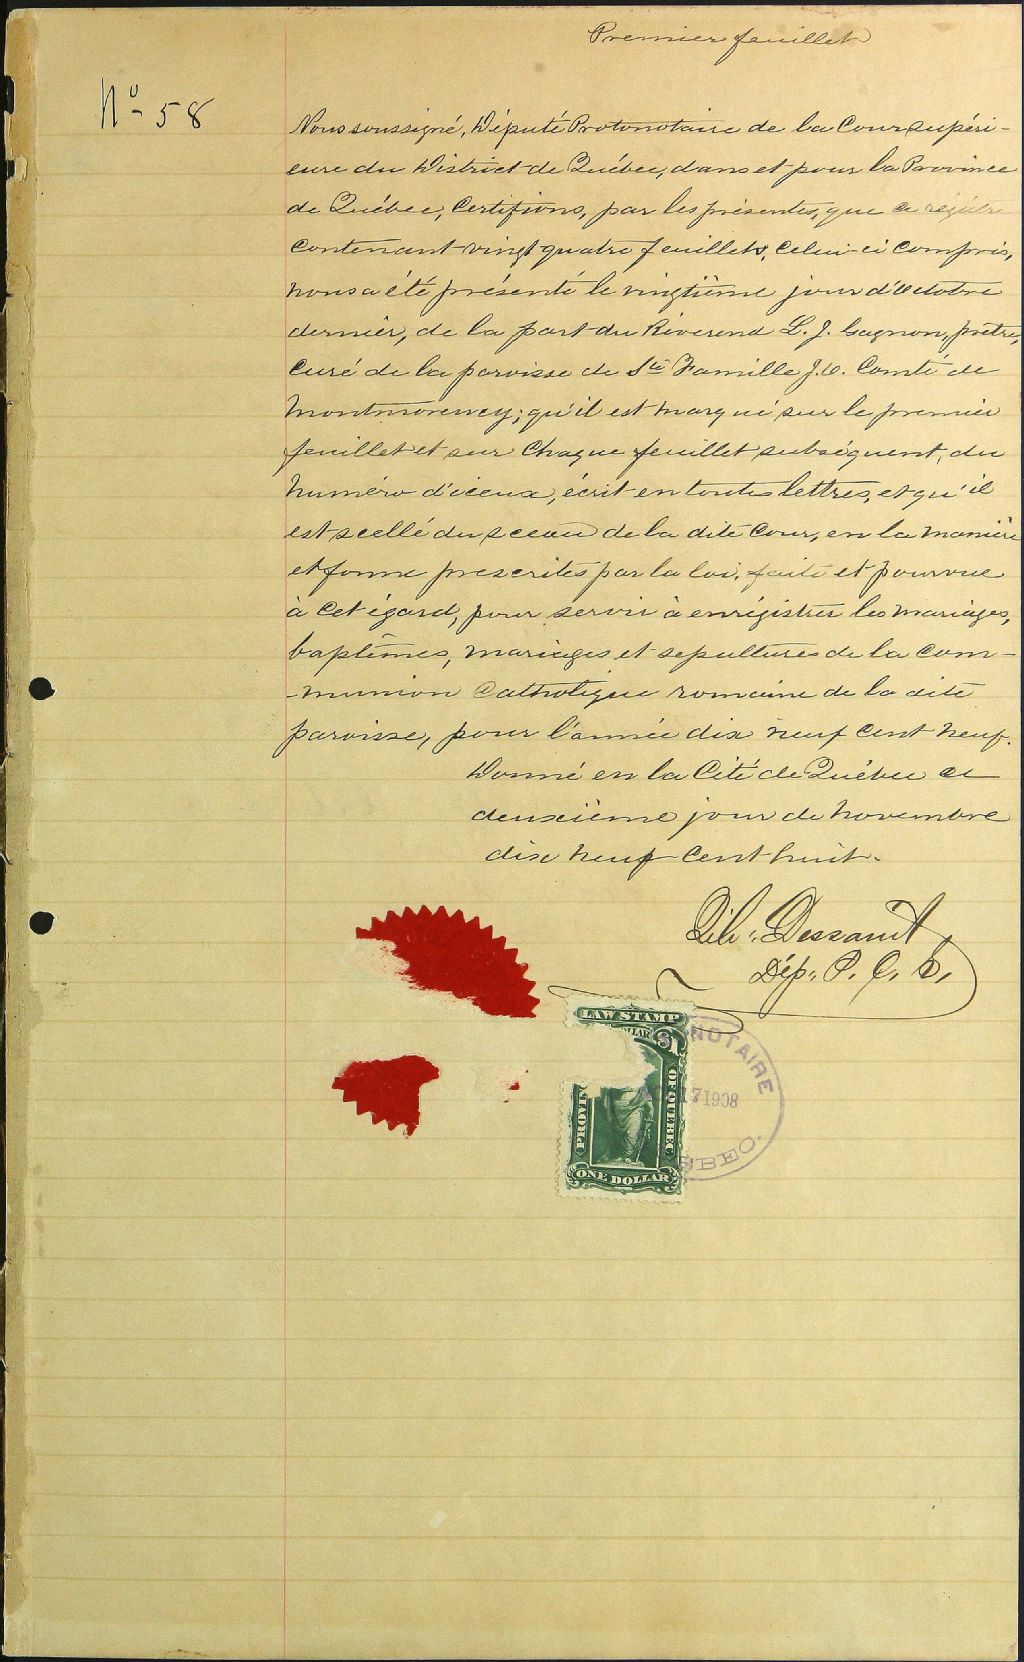 Premier feuillet
No 58
Nous soussigné, Député Protonotaire de la Cour Supéri-
eure du District de Québec, dans et pour la Province
de Québec, Certifions, par les présentes, que ce registre
contenant vingt quatre feuillets, celui-ci compris,
nous a été présenté le vingtième jour d'Octobre
dernier, de la part du Révérend L. J. Gagnon, prêtre,
Curé de la paroisse de Ste Famille J.O. Comté de
Montmorency; qu'il est marqué sur le premier
feuillet et sur Chaque feuillet subséquent, du
numéro d'iceux, écrit en toutes lettres, et qu'il
est scellé du sceau de la dite Cour, en la manière
et forme prescrites par la loi, faite et pourvue
à Cet égard, pour servir à enrégistrer les mariages,
baptêmes, mariages et sépultures de la Com-
-munion Catholique romaine de la dite
paroisse, pour l'année dix neuf Cent neuf.
Donné en la Cité de Québec ce
deuxième jour de Novembre
dix neuf Cent huit.
Dessault
Dép. P. C. S.
LAW STAMP
LLAR $1
PROVIN
OF QUEBEC
ONE DOLLAR
NOTAIRE
17 1908
BEC.